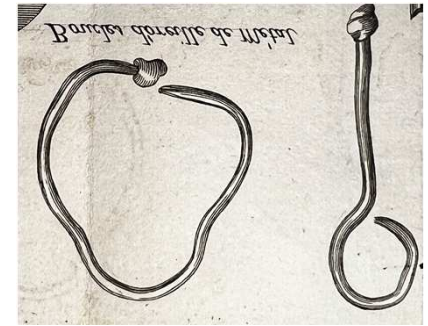 Boucles doreille de Métal